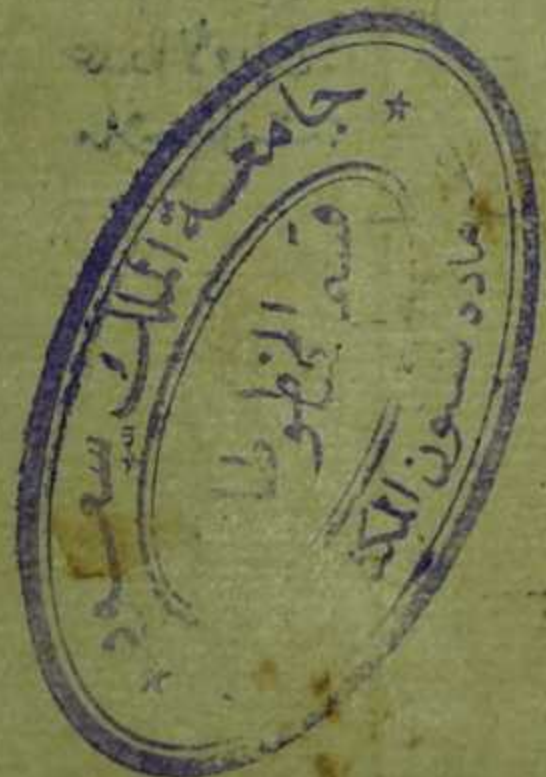 جامعة الملك سعود
قسم المخطوطا
عمادة شئون المكتبـ